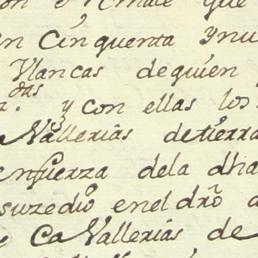 que
en Cinquenta ynu
Vlancas dequien
das
y con ellas los
Vallerias detierra
enfuerza dela dha
suzedio eneldro a
e CaVallerias de